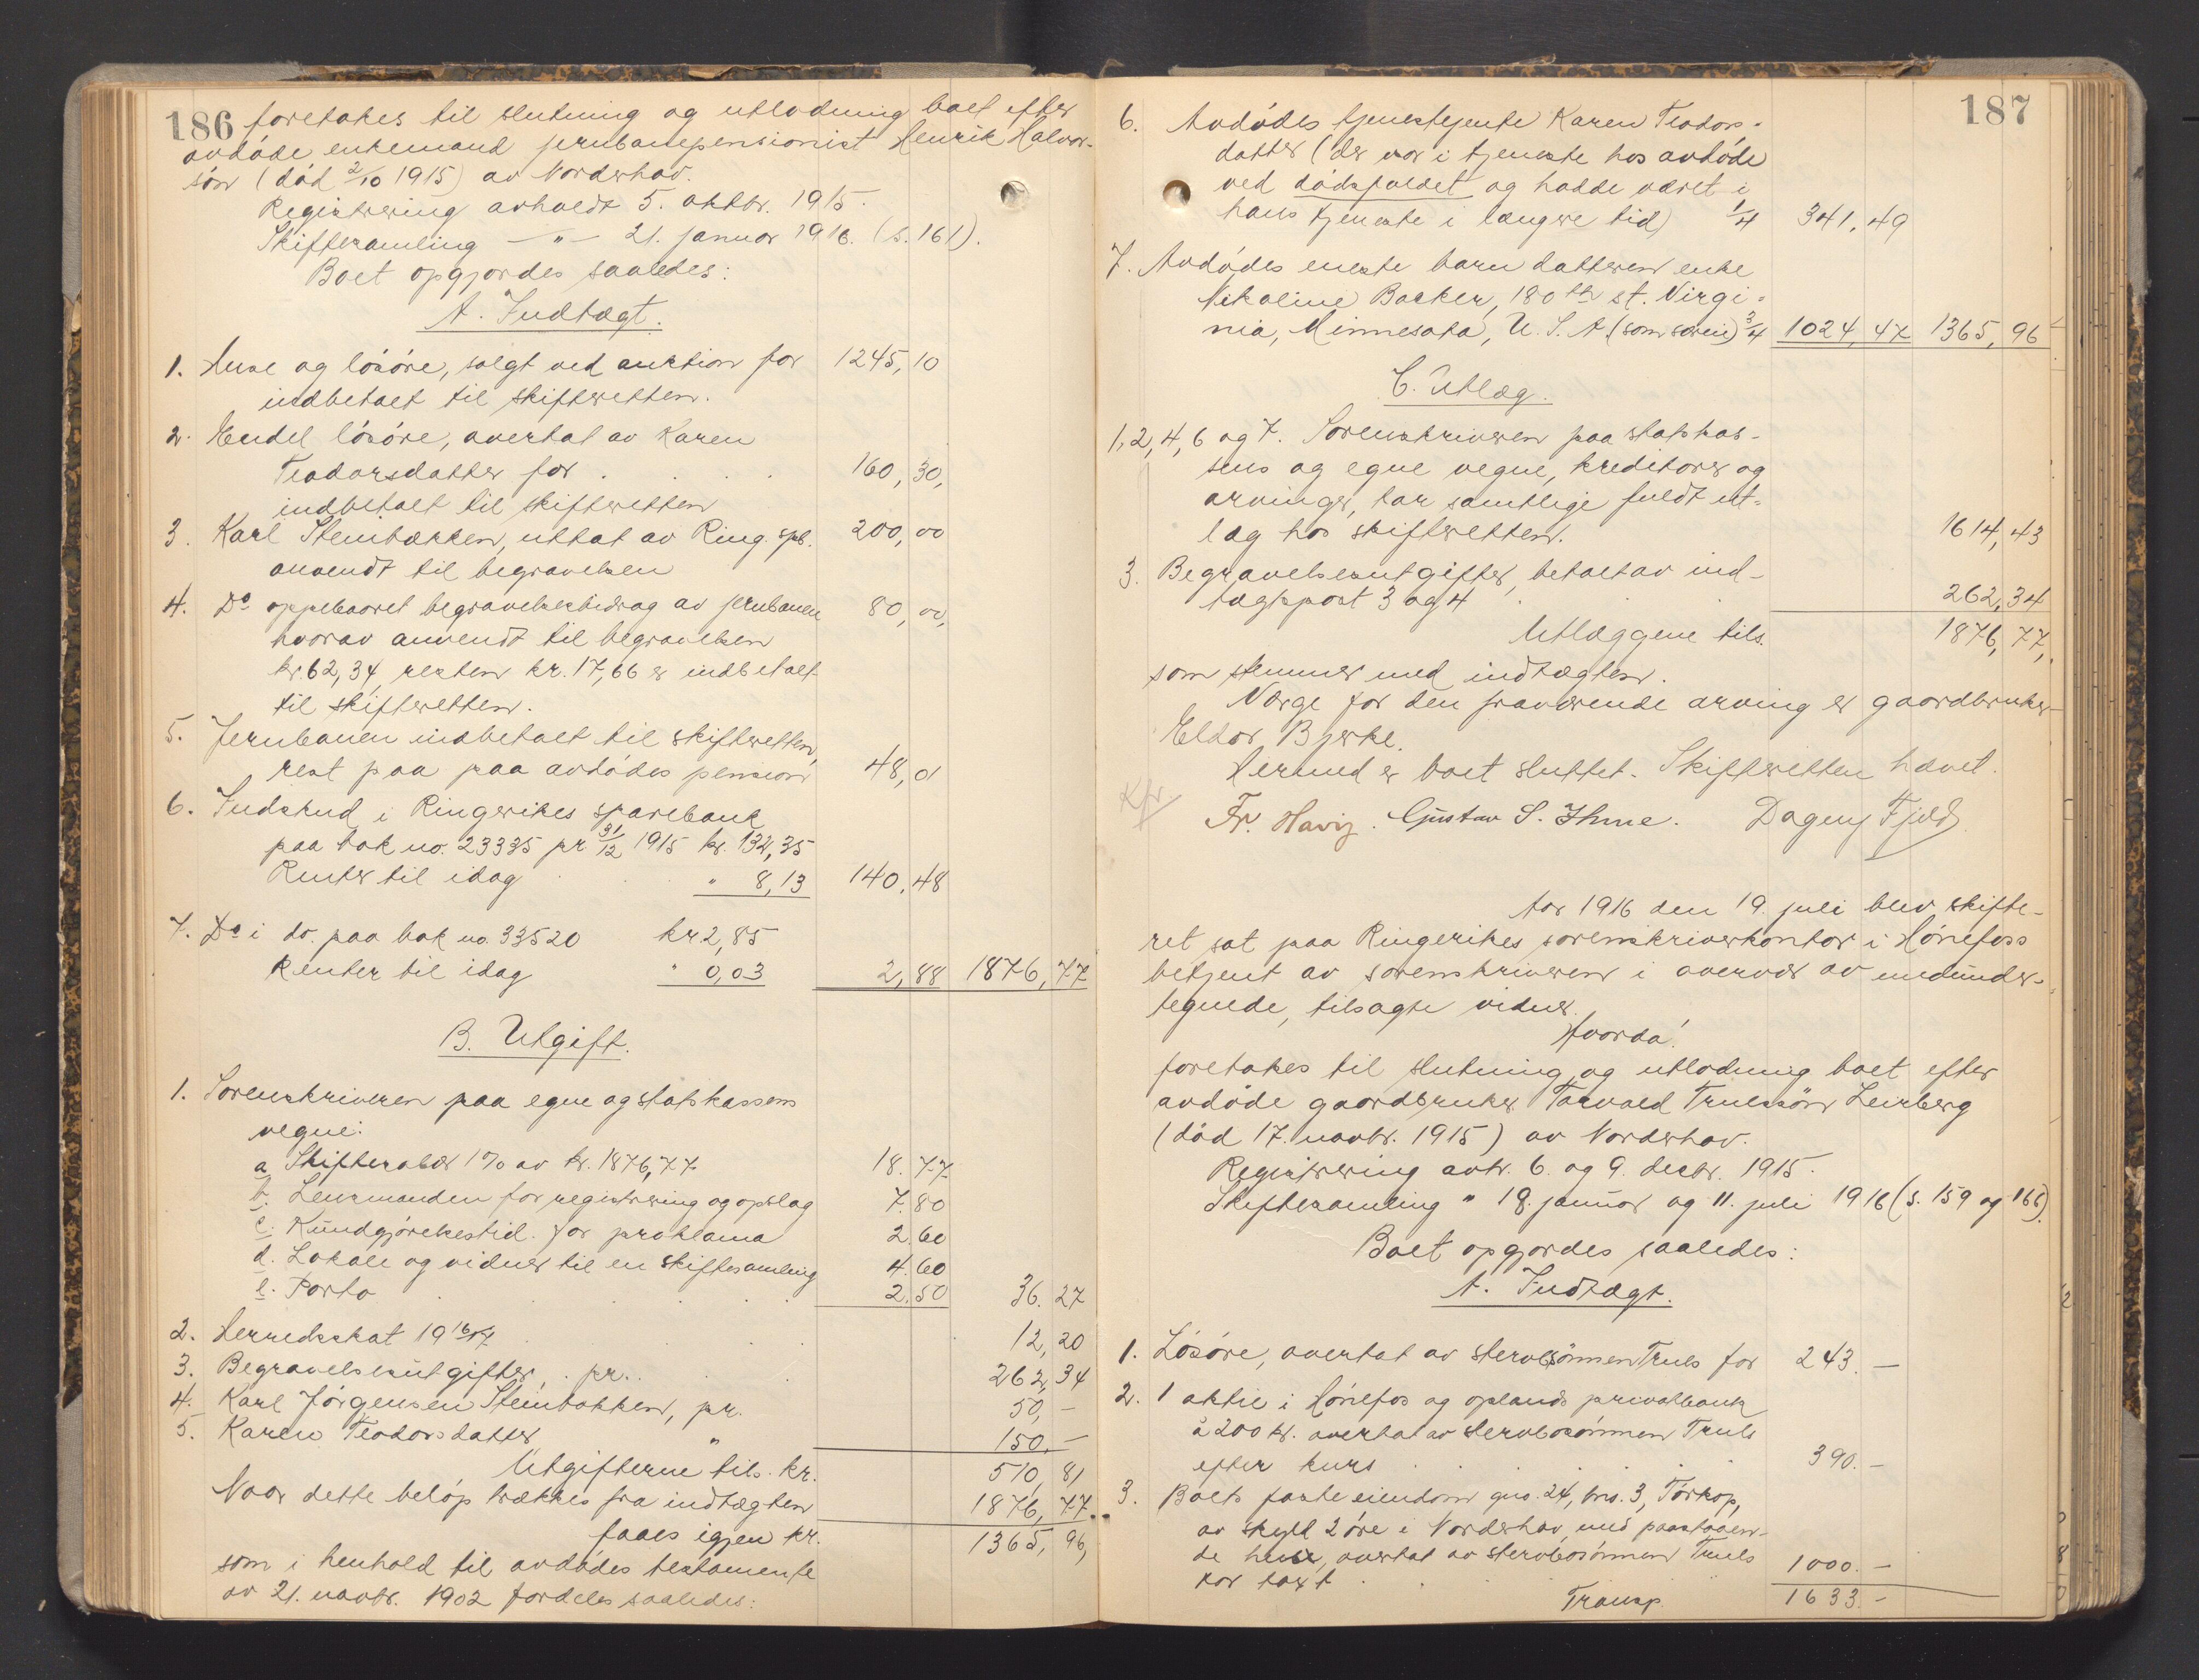 186
foretakes til slutning og utlodning boet efter
avdøde enkemand jernbanepensionist Henrik Halvor-
søn (død 2/10 1915) av Norderhov.
Registrering avholdt 5. oktbr. 1915.
Skiftesamling — " — 21. januar 1916. (s. 161).
Boet opgjordes saaledes:
A. Indtægt.
1. Huse og løsøre, solgt ved auktion for 1245,10
indbetalt til skifteretten.
2. Endel løsøre, overtat av Karen
Teodorsdatter for . . . . 160,30,
indbetalt til skifteretten
3. Karl Steinbakken, uttat av Ring. spb. 200,00
anvendt til begravelsen
4. Do oppebaaret begravelsesbidrag av jernbanen 80,00,
hvorav anvendt til begravelsen
kr. 62,34, resten kr. 17,66 er indbetalt
til skifteretten.
5. Jernbanen indbetalt til skifteretten,
rest paa paa avdødes pension 48,01
6. Indskud i Ringerikes sparebank
paa bok no. 23335 pr 31/12 1915 kr. 132,35
Renter til idag " 8,13 140,48
7. Do i do. paa bok no. 33520 kr 2,85
Renter til idag " 0,03 2,88 1876,77
B. Utgift.
1. Sorenskriveren paa egne og statskassens
vegne:
a. Skifteralær 1% av kr. 1876,77 18.77
b. Lensmanden for registrering og opslag 7.80
c. Kundgjørelsestid. for proklama 2.60
d. Lokale og vidner til en skiftesamling 4.60
e. Porto . . . . 2.50 36.27
2. Herredsskat 1916/17 . . . 12,20
3. Begravelsesutgifter, pr. . . 262,34
4. Karl Jørgensen Steinbakken, pr. 50,-
5. Karen Teodorsdatter " 150.-
Utgifterne tils. kr. 510,81
Naar dette beløp trækkes fra indtægten 1876,77.
faaes igjen kr. 1365,96,
som i henhold til avdødes testamente
av 21. novbr. 1902 fordeles saaledes:
187
6. Avdødes tjenestejente Karen Teodors-
datter (der var i tjeneste hos avdøde
ved dødsfaldet og hadde været i
hans tjeneste i længere tid) 1/4 341,49
7. Avdødes eneste barn datteren enke
Nikoline Backer, 180th st. Virgi-
nia, Minnesota, U.S.A. (som særeie) 3/4 1024,47 1365,96
C. Utlæg.
1, 2, 4, 6 og 7. Sorenskriveren paa statskas-
sens og egne vegne, kreditorer og
arvinger, tar samtlige fuldt ut-
læg hos skifteretten. 1614,43
3. Begravelsesutgifter, betalt av ind-
tægtspost 3 og 4 . . 262,34
Utlæggene tils. 1876,77,
som stemmer med indtægten.
Værge for den fraværende arving er gaardbruker
Eldor Bjerke.
Hermed er boet sluttet. Skifteretten hævet.
Kfr.
Fr. Harig. Gustav S. Ihme. Dagny Fjeld
Aar 1916 den 19. juli blev skifte-
ret sat paa Ringerikes sorenskriverkontor i Hønefoss
betjent av sorenskriveren i overvær av medunder-
tegnede, tilsagte vidner.
Hvorda:
foretakes til slutning og utlodning boet efter
avdøde gaardbruker Torvald Trulssøn Leirberg
(død 17. novbr. 1915) av Norderhov.
Registrering avh. 6. og 9. desbr. 1915.
Skiftesamling " 18. januar og 11. juli 1916 (s. 159 og 166).
Boet opgjordes saaledes:
A. Indtægt.
1. Løsøre, overtat av stervbsønnen Truls for 243.—
2. 1 aktie i Hønefos og oplands privatbank
à 200 kr. overtat av stervbosønnen Truls
efter kurs . . . . . 390.-
3. Boets faste eiendom gno. 24, bno. 3, Torkop,
av skyld 2 øre i Norderhov med paastaaen-
de huse, overtat av stervbosønnen Truls
for taxt . . . . 1000.-
Transp. 1633.-